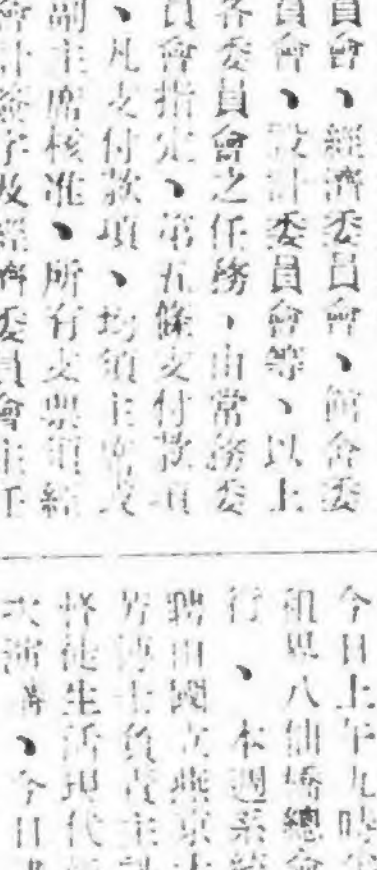 員會、經濟委員會、館舍委
員會、設計委員會等、以上
各委員會之任務、由常務委
員會指定、第五條支付款項
、凡支付款項、均須主席或
副主席核准、所有支票須經
會計簽字及經濟委員會主任
今日上午九時
租界八仙橋總會
行、本週系統
國立燕京大
博士負責主
徒生活現代
次演講、今日